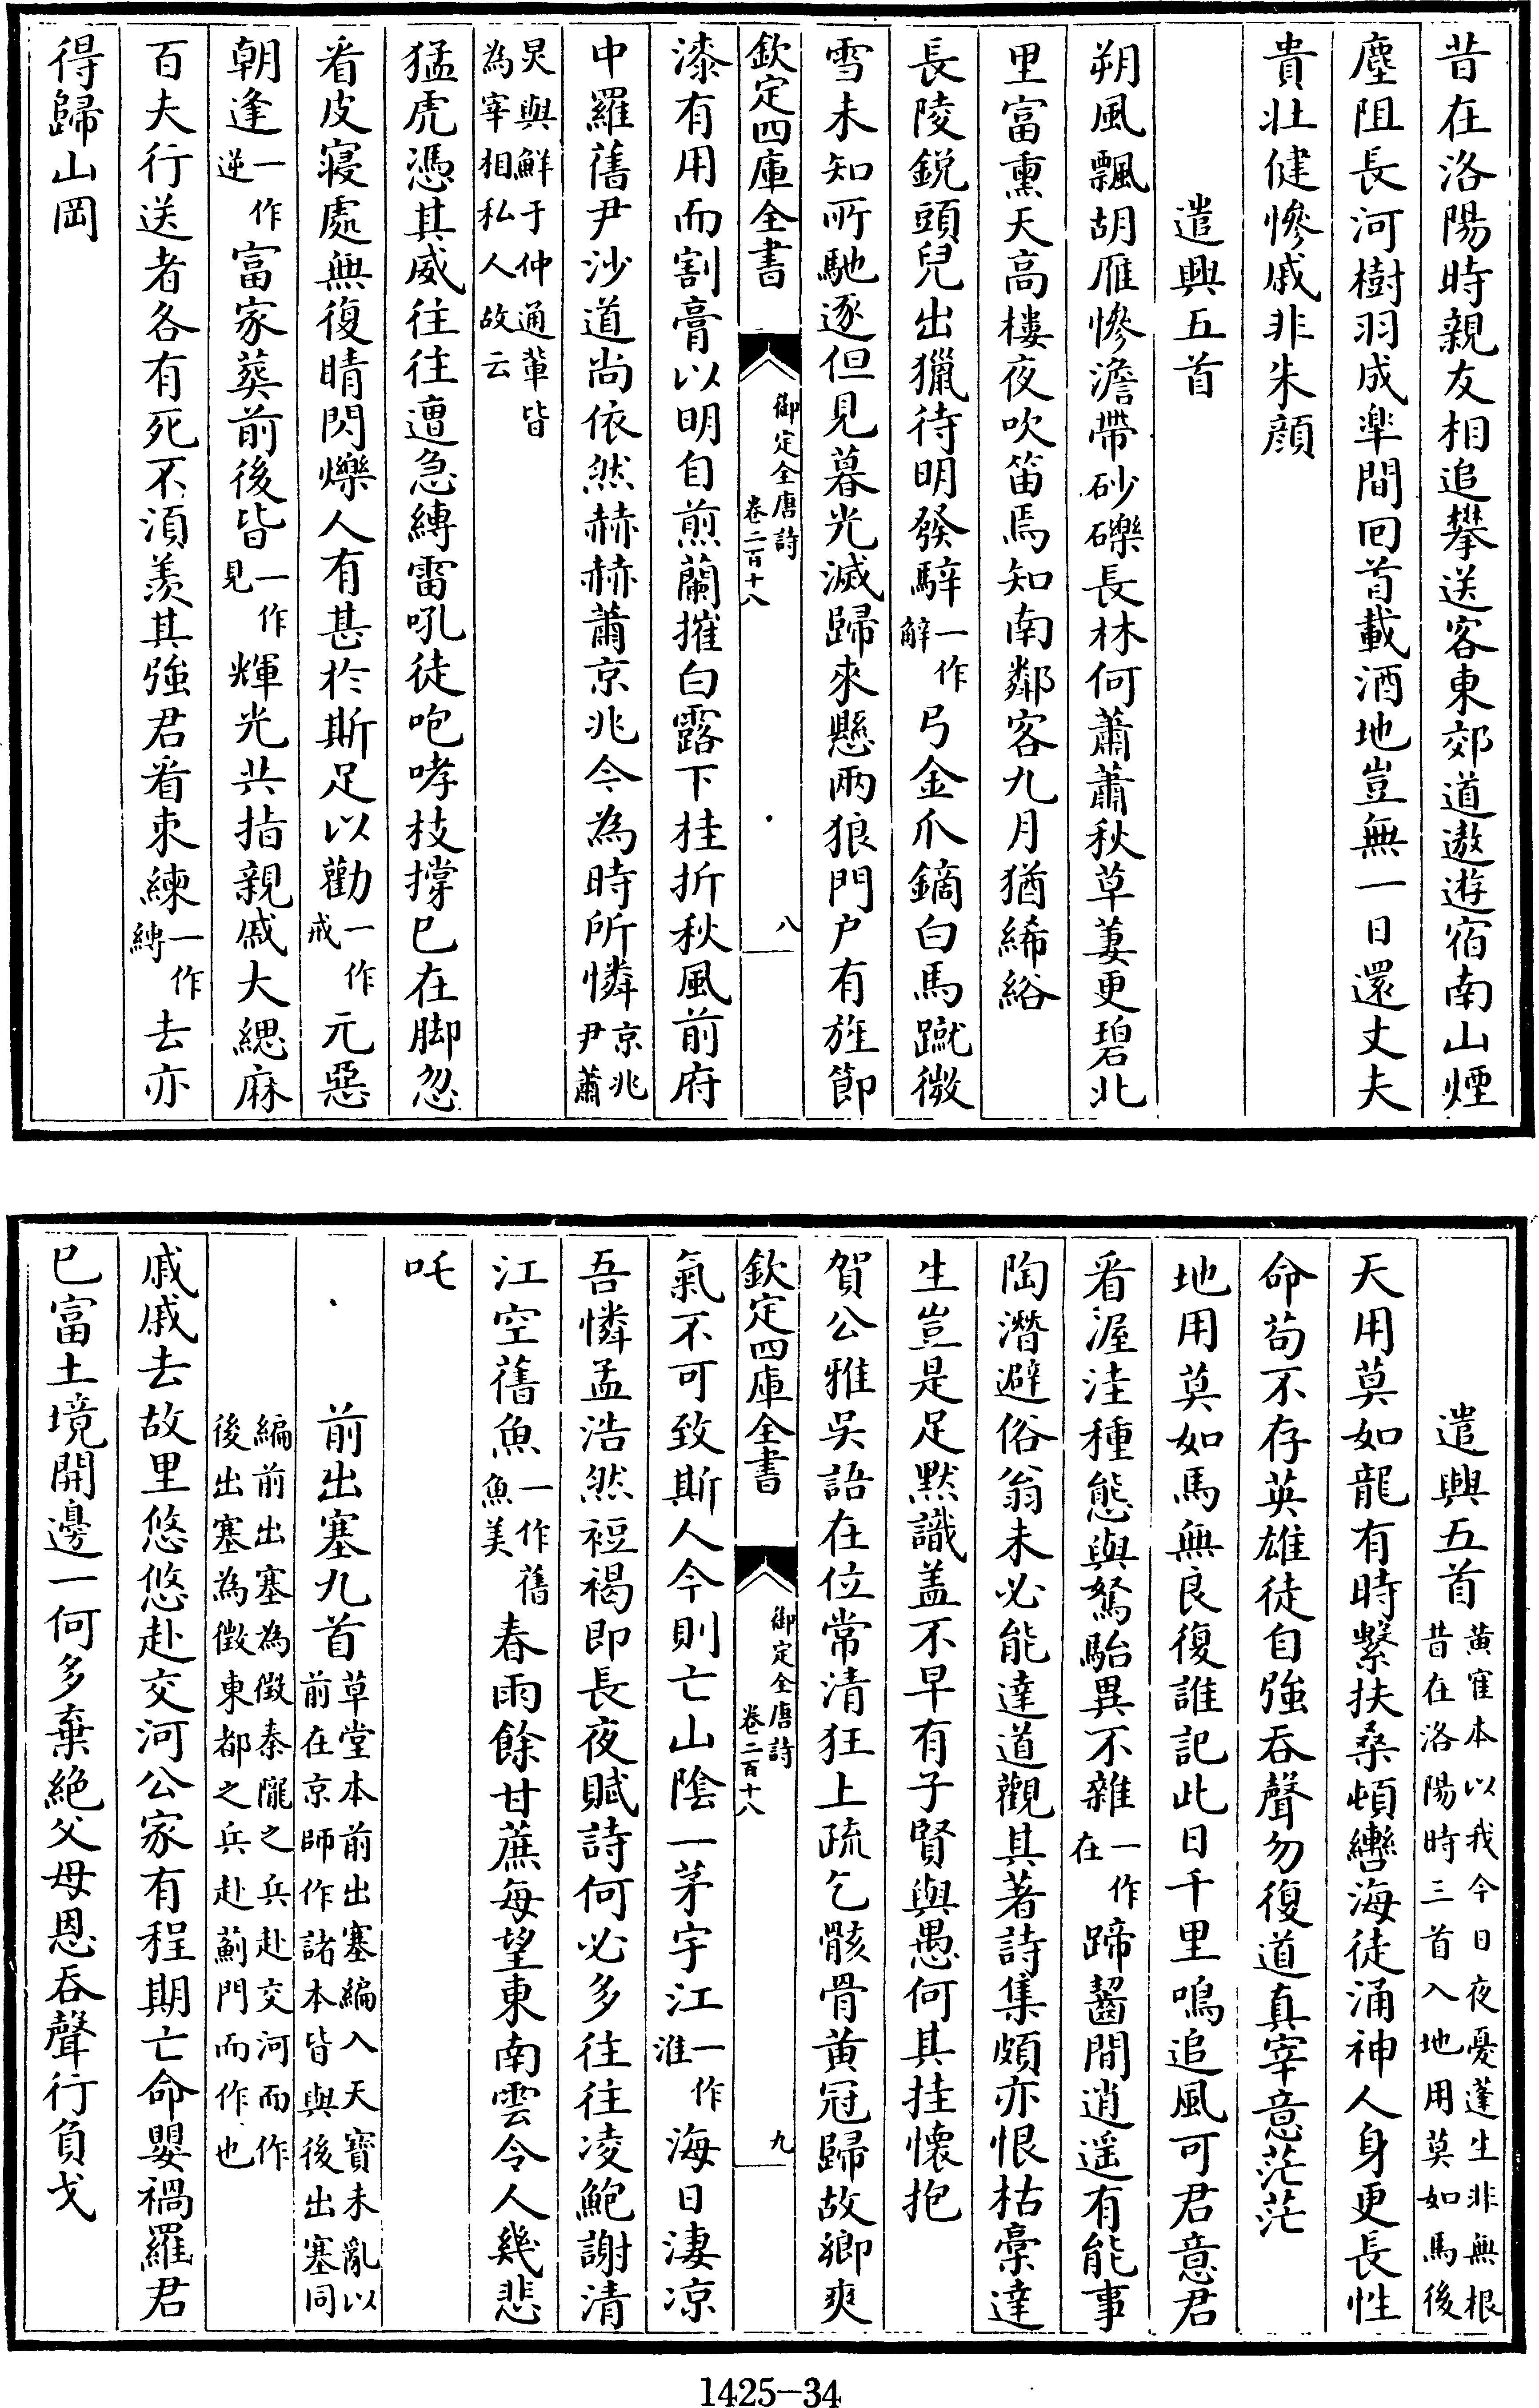 昔在洛陽時親友相追攀送客東郊道遨遊宿南山煙
塵阻長河樹羽成臯間回首載酒地豈無一日還丈夫
貴壯健慘戚非朱顔
遣興五首
朔風飄胡雁慘澹帶砂礫長林何蕭蕭秋草萋更碧北
里富熏天高樓夜吹笛焉知南鄰客九月猶絺綌
長陵鋭頭兒出獵待明發騂一作觧弓金爪鏑白馬蹴微
雪未知所馳逐但見暮光滅歸來懸兩狼門户有旌節
欽定四庫全書 御定全唐詩卷二百十八 八
漆有用而割膏以明自煎蘭摧白露下桂折秋風前府
中羅舊尹沙道尚依然赫赫蕭京兆今為時所憐京兆尹蕭
炅與鮮于仲通軰皆為宰相私人故云
猛虎憑其威往往遭急縛雷吼徒咆哮枝撐已在脚忽
看皮寢處無復睛閃爍人有甚於斯足以勸一作戒元惡
朝逢一作逆富家葬前後皆一作見輝光共指親戚大緦麻
百夫行送者各有死不湏羨其強君看束練一作縛去亦
得歸山岡
遣興五首黄寉本以我今日夜憂蓬生非無根昔在洛陽時三首入地用莫如馬後
天用莫如龍有時繫扶桑頓轡海徒涌神人身更長性
命苟不存英雄徒自強吞聲勿復道真宰意茫茫
地用莫如馬無良復誰記此日千里鳴追風可君意君
看渥洼種態與駑駘異不雜一作在蹄齧間逍遥有能事
陶潛避俗翁未必能達道觀其著詩集頗亦恨枯槀達
生豈是足默識盖不早有子賢與愚何其挂懷抱
賀公雅吳語在位常清狂上疏乞骸骨黄冠歸故鄉爽
欽定四庫全書 御定全唐詩卷二百十八 九
氣不可致斯人今則亡山隂一茅宇江一作淮海日淒凉
吾憐孟浩然裋褐即長夜賦詩何必多往往凌鮑謝清
江空舊魚一作舊魚美春雨餘甘蔗每望東南雲令人幾悲
吒
前出塞九首草堂本前出塞編入天寶未亂以前在京師作諸本皆與後出塞同
編前出塞為徴秦隴之兵赴交河而作後出塞為徴東都之兵赴薊門而作也
戚戚去故里悠悠赴交河公家有程期亡命嬰禍羅君
已富土境開邊一何多棄絶父母恩吞聲行負戈
1425-34